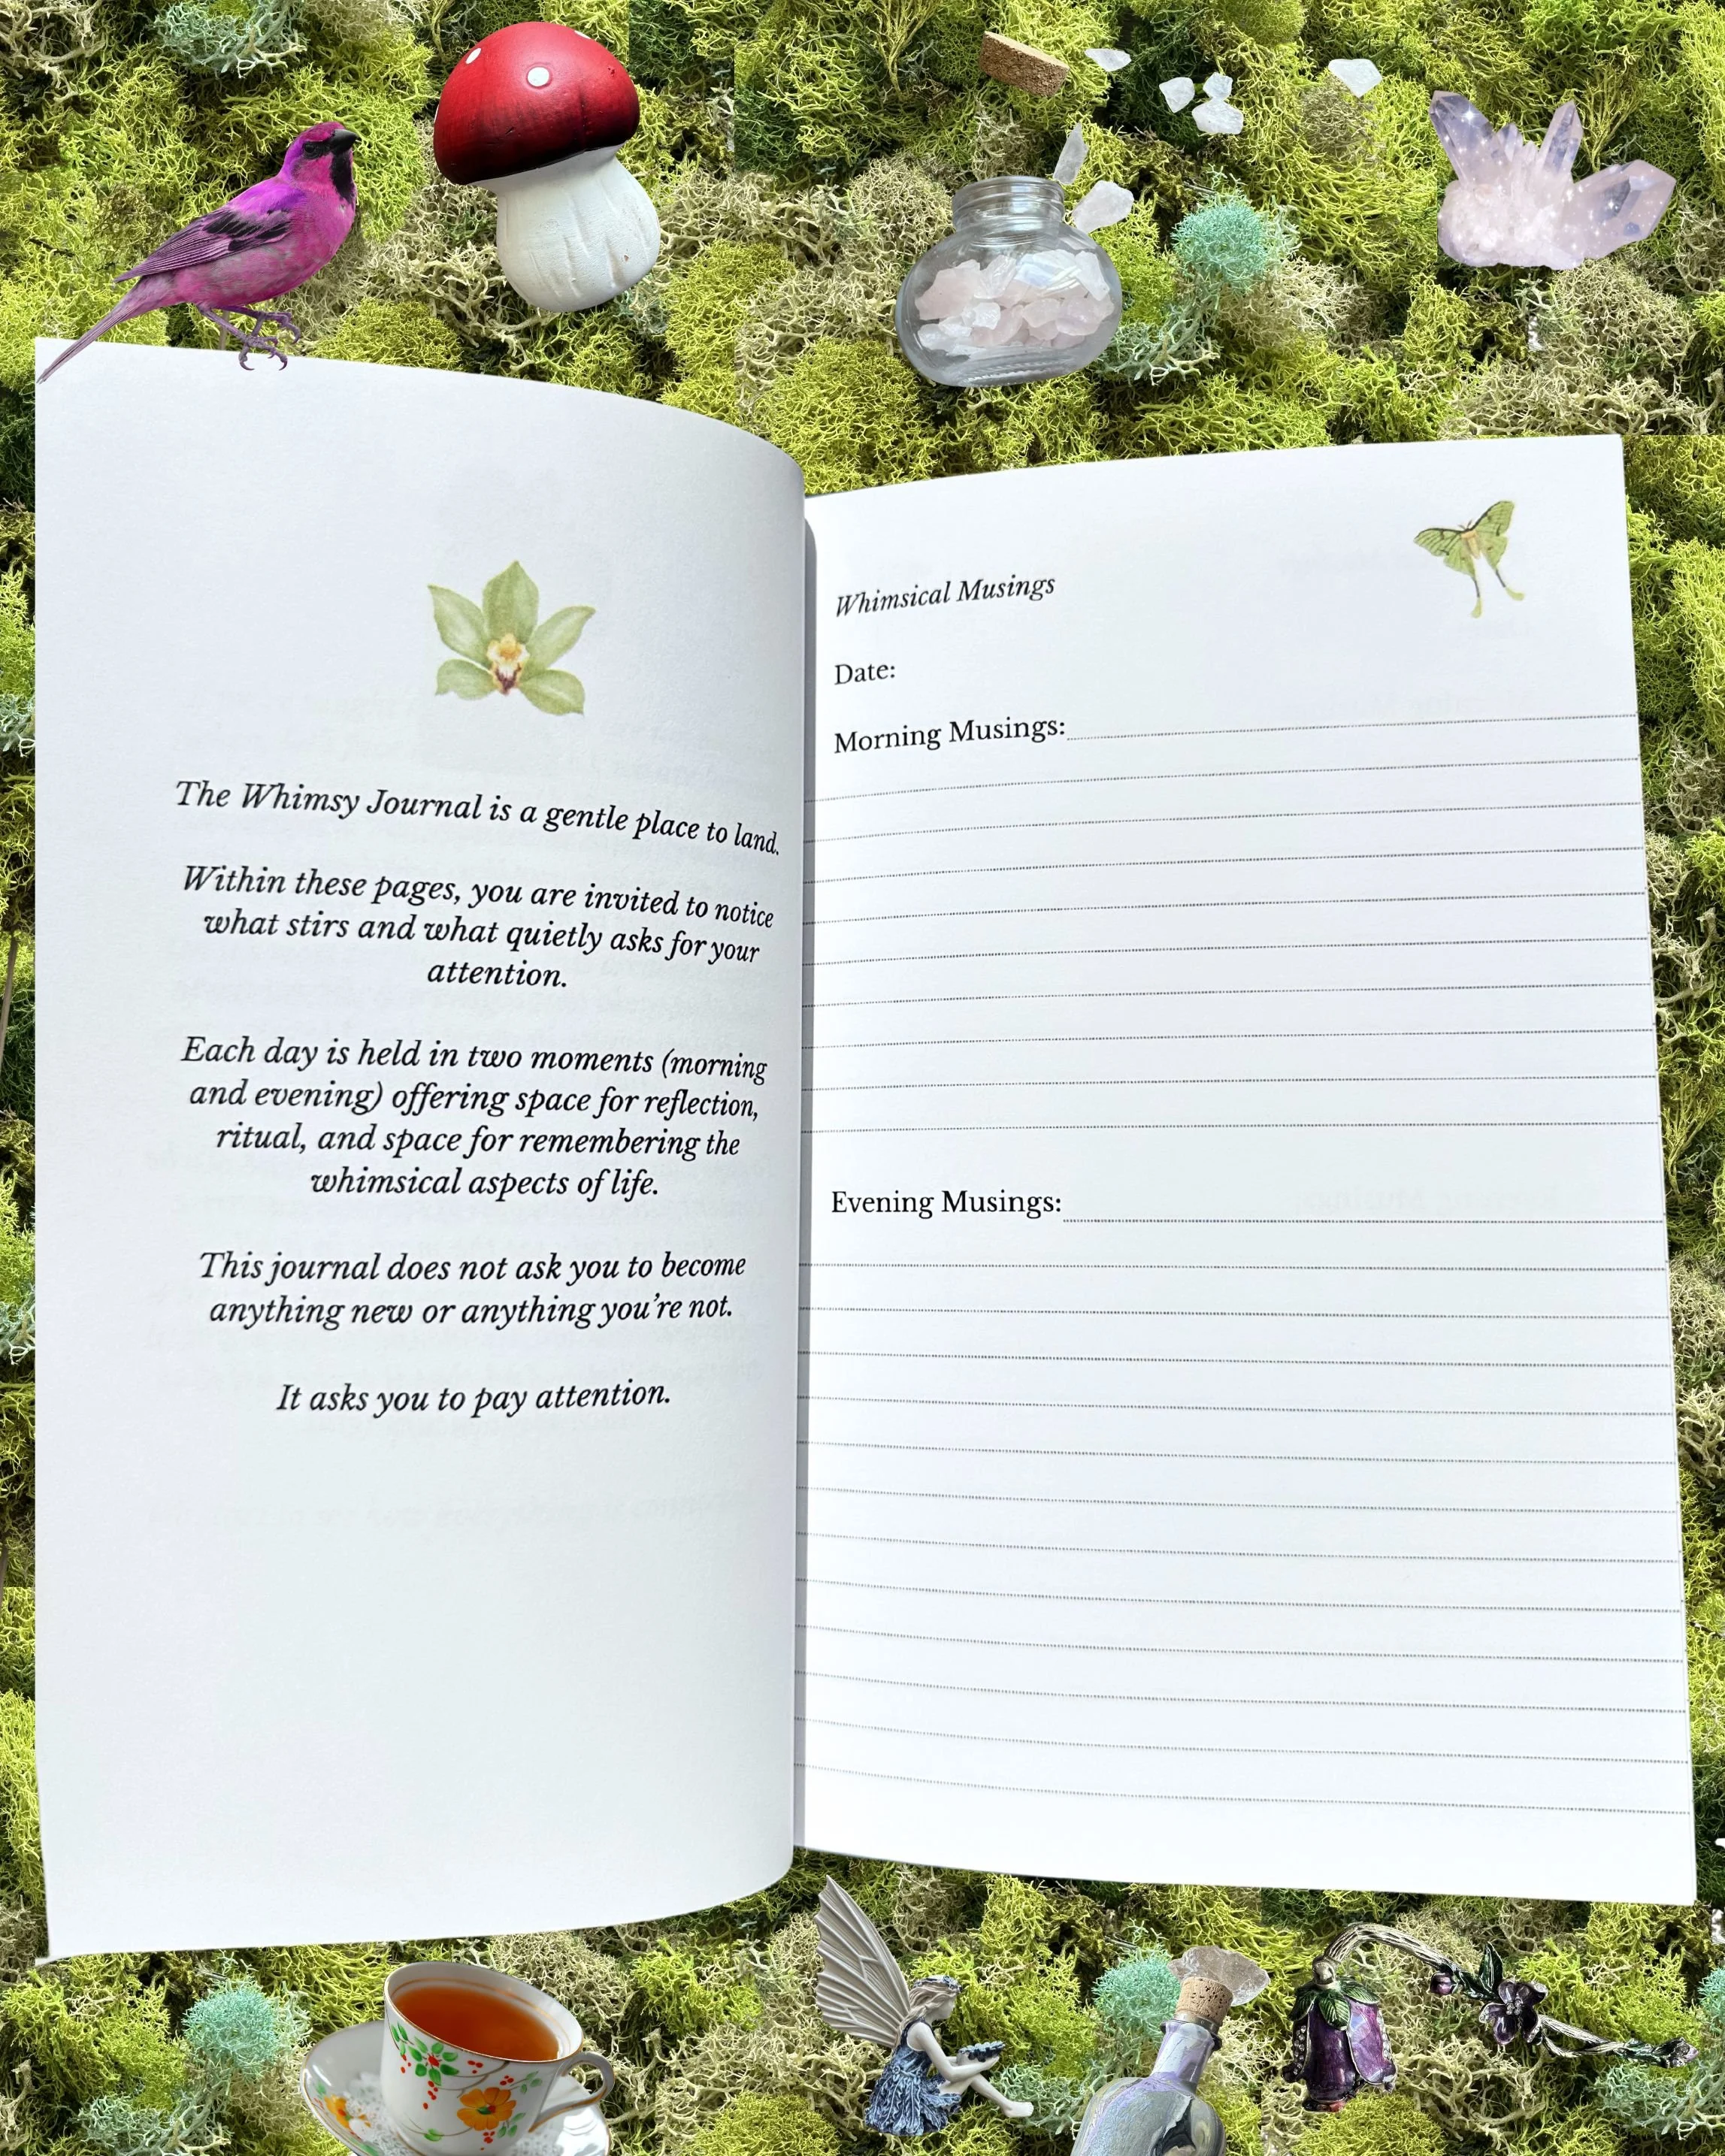 The Whimsy Journal is a gentle place to land.
Within these pages, you are invited to notice
what stirs and what quietly asks for your
attention.
Each day is held in two moments (morning
and evening) offering space for reflection,
ritual, and space for remembering the
whimsical aspects of life.
This journal does not ask you to become
anything new or anything you're not.
It asks you to pay attention.
Whimsical Musings
Date:
Morning Musings:
Evening Musings: